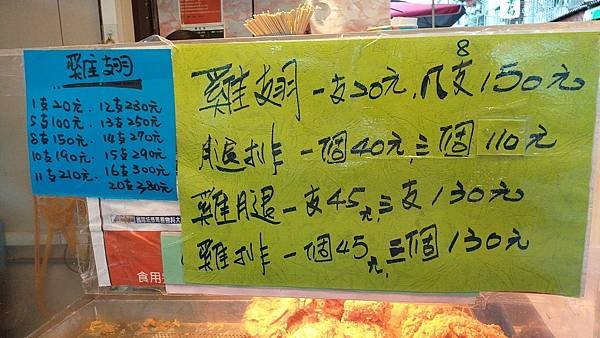 雞翅
1支20元. 12支230元
5支100元. 13支250元
8支150元. 14支270元
10支190元. 15支290元
11支210元. 16支300元
20支380元
8
雞翅一支20元,八支150元
腿排一個40元,三個110元
雞腿一支45元,三支130元
雞排一個45元,三個130元
食用